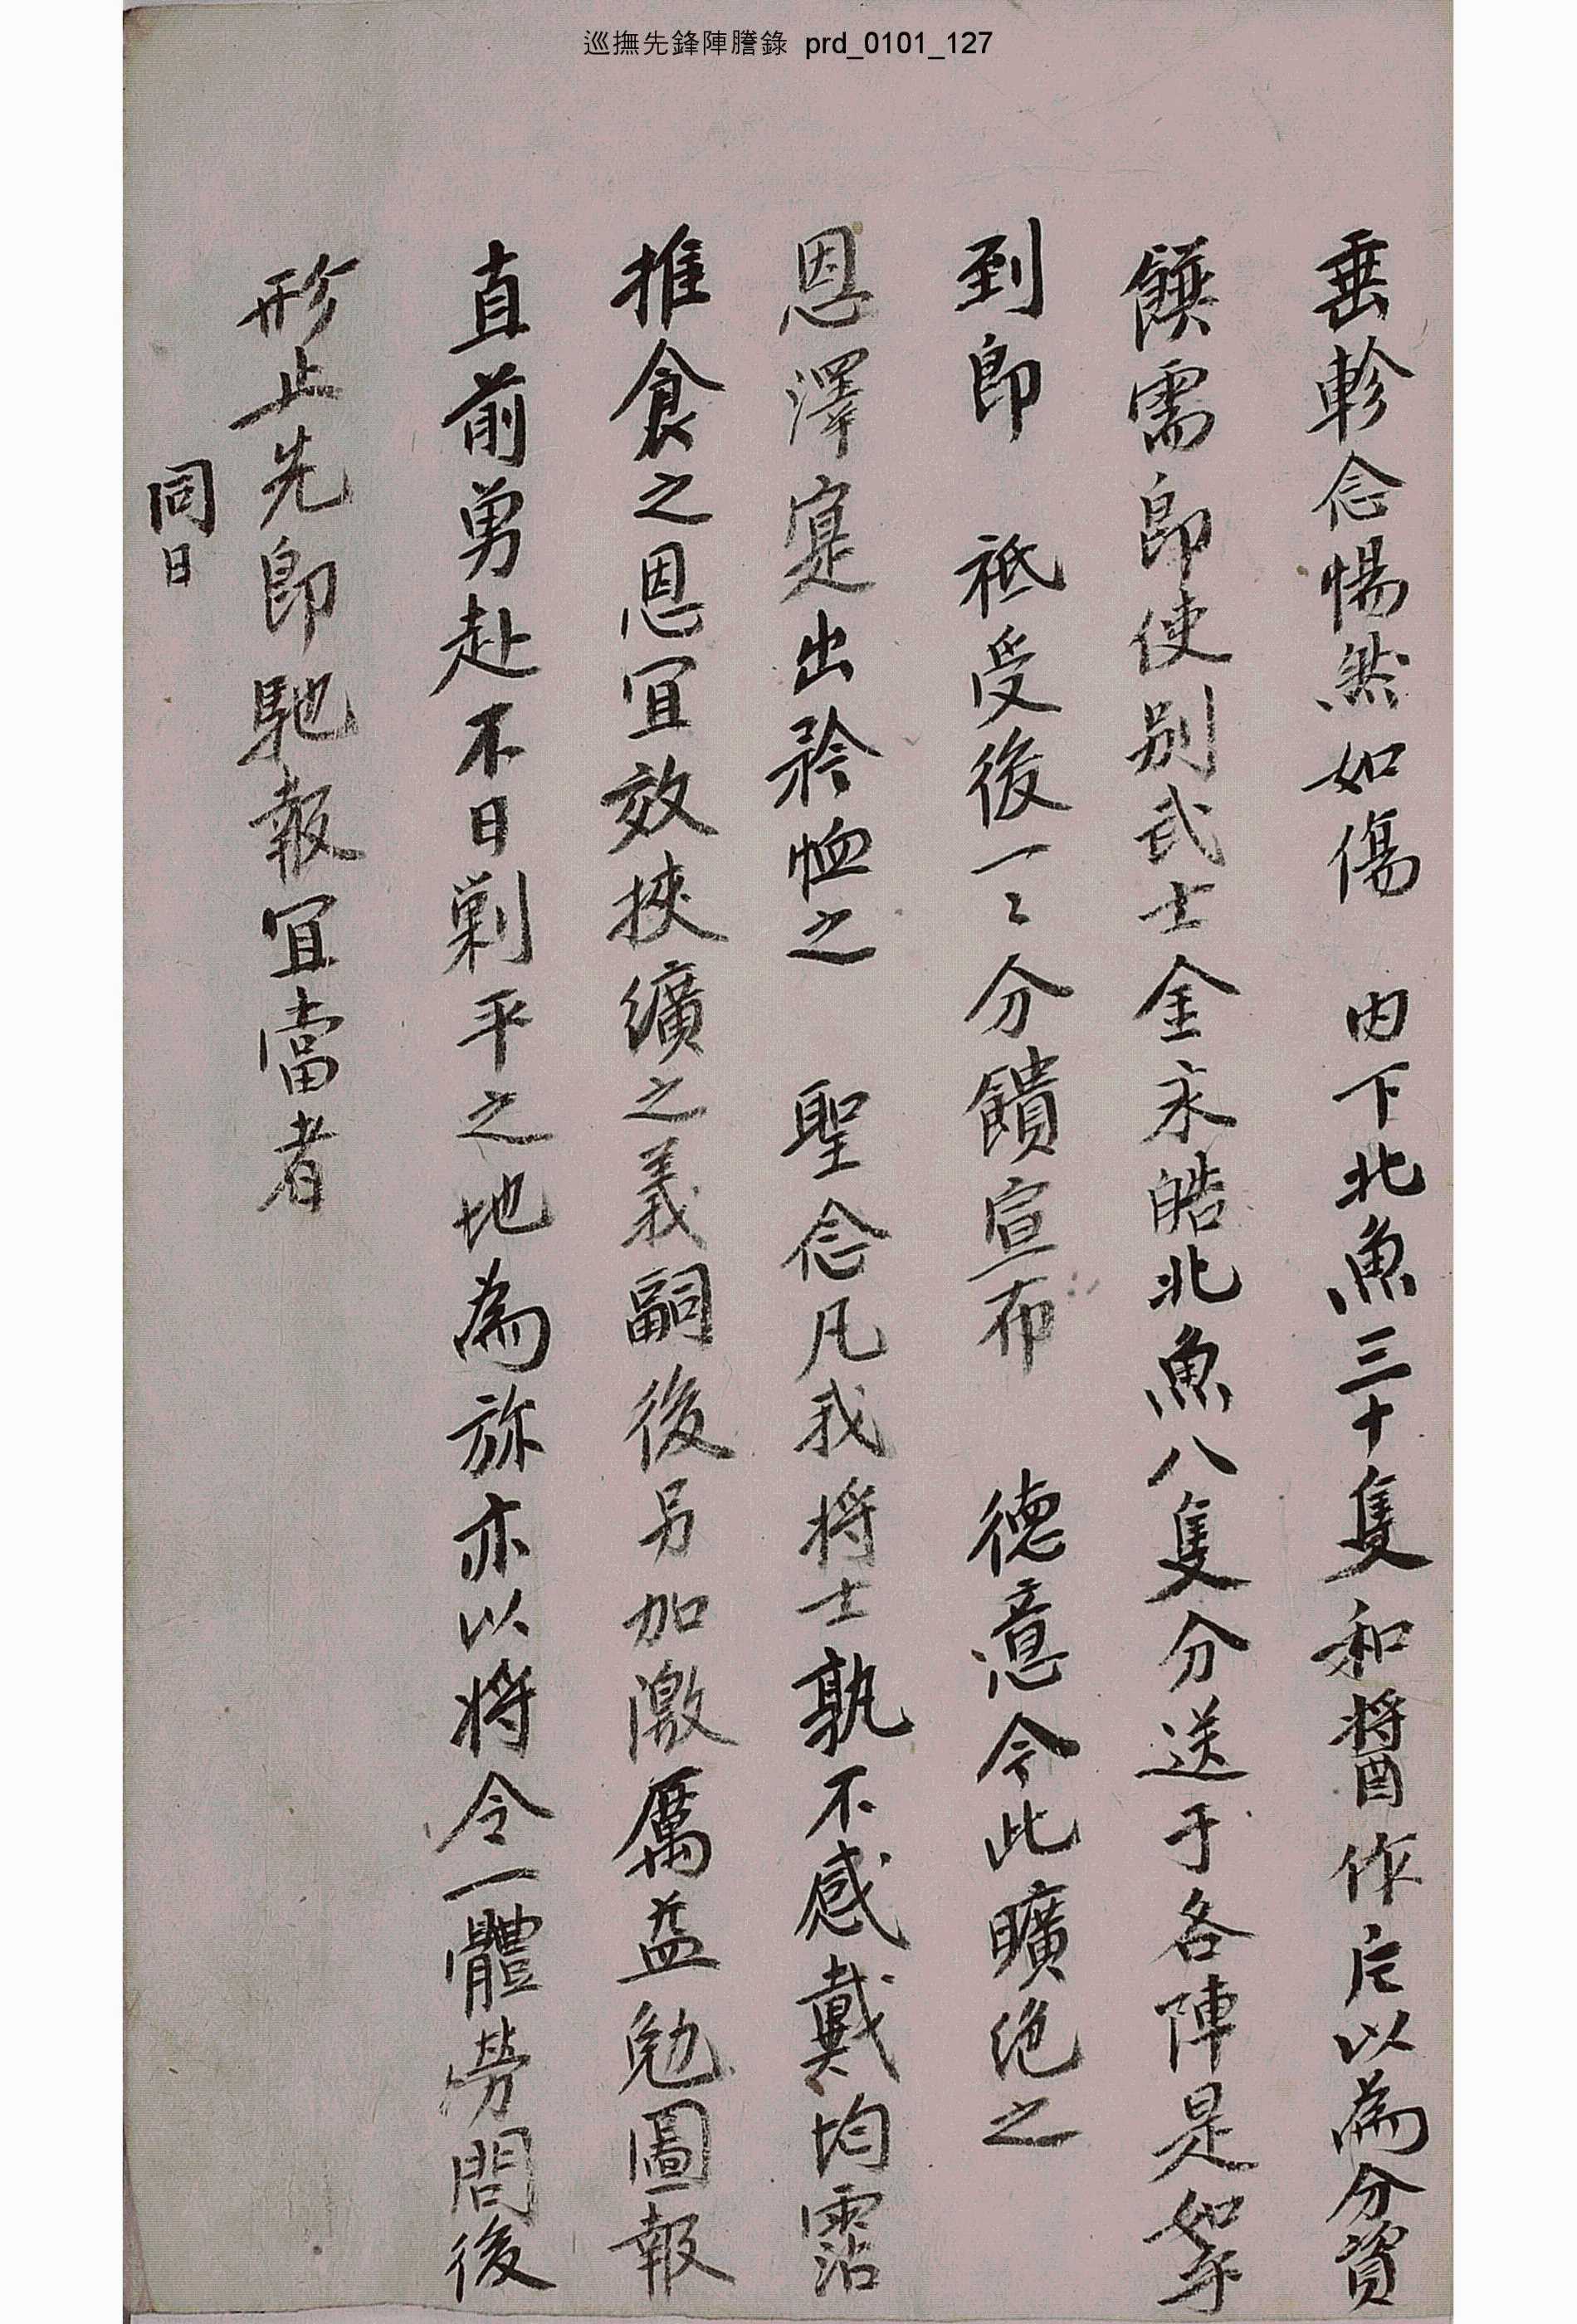 巡撫先鋒陣謄錄 prd_0101_127
垂軫念惕然如傷 内下北魚三十隻和醬作片以為分資
饌需即使別武士金永皓北魚八隻分送于各陣是如乎
到即 祗受後一〻分饋宣布 德意今此曠絶之
恩澤寔出矜恤之 聖念凡我將士孰不感戴均霑
推食之恩宜效挾纊之義嗣後另加激厲益勉圖報
直前勇赴不日剿平之地為旀亦以將令一體勞問後
形止先即馳報宜當者
同日